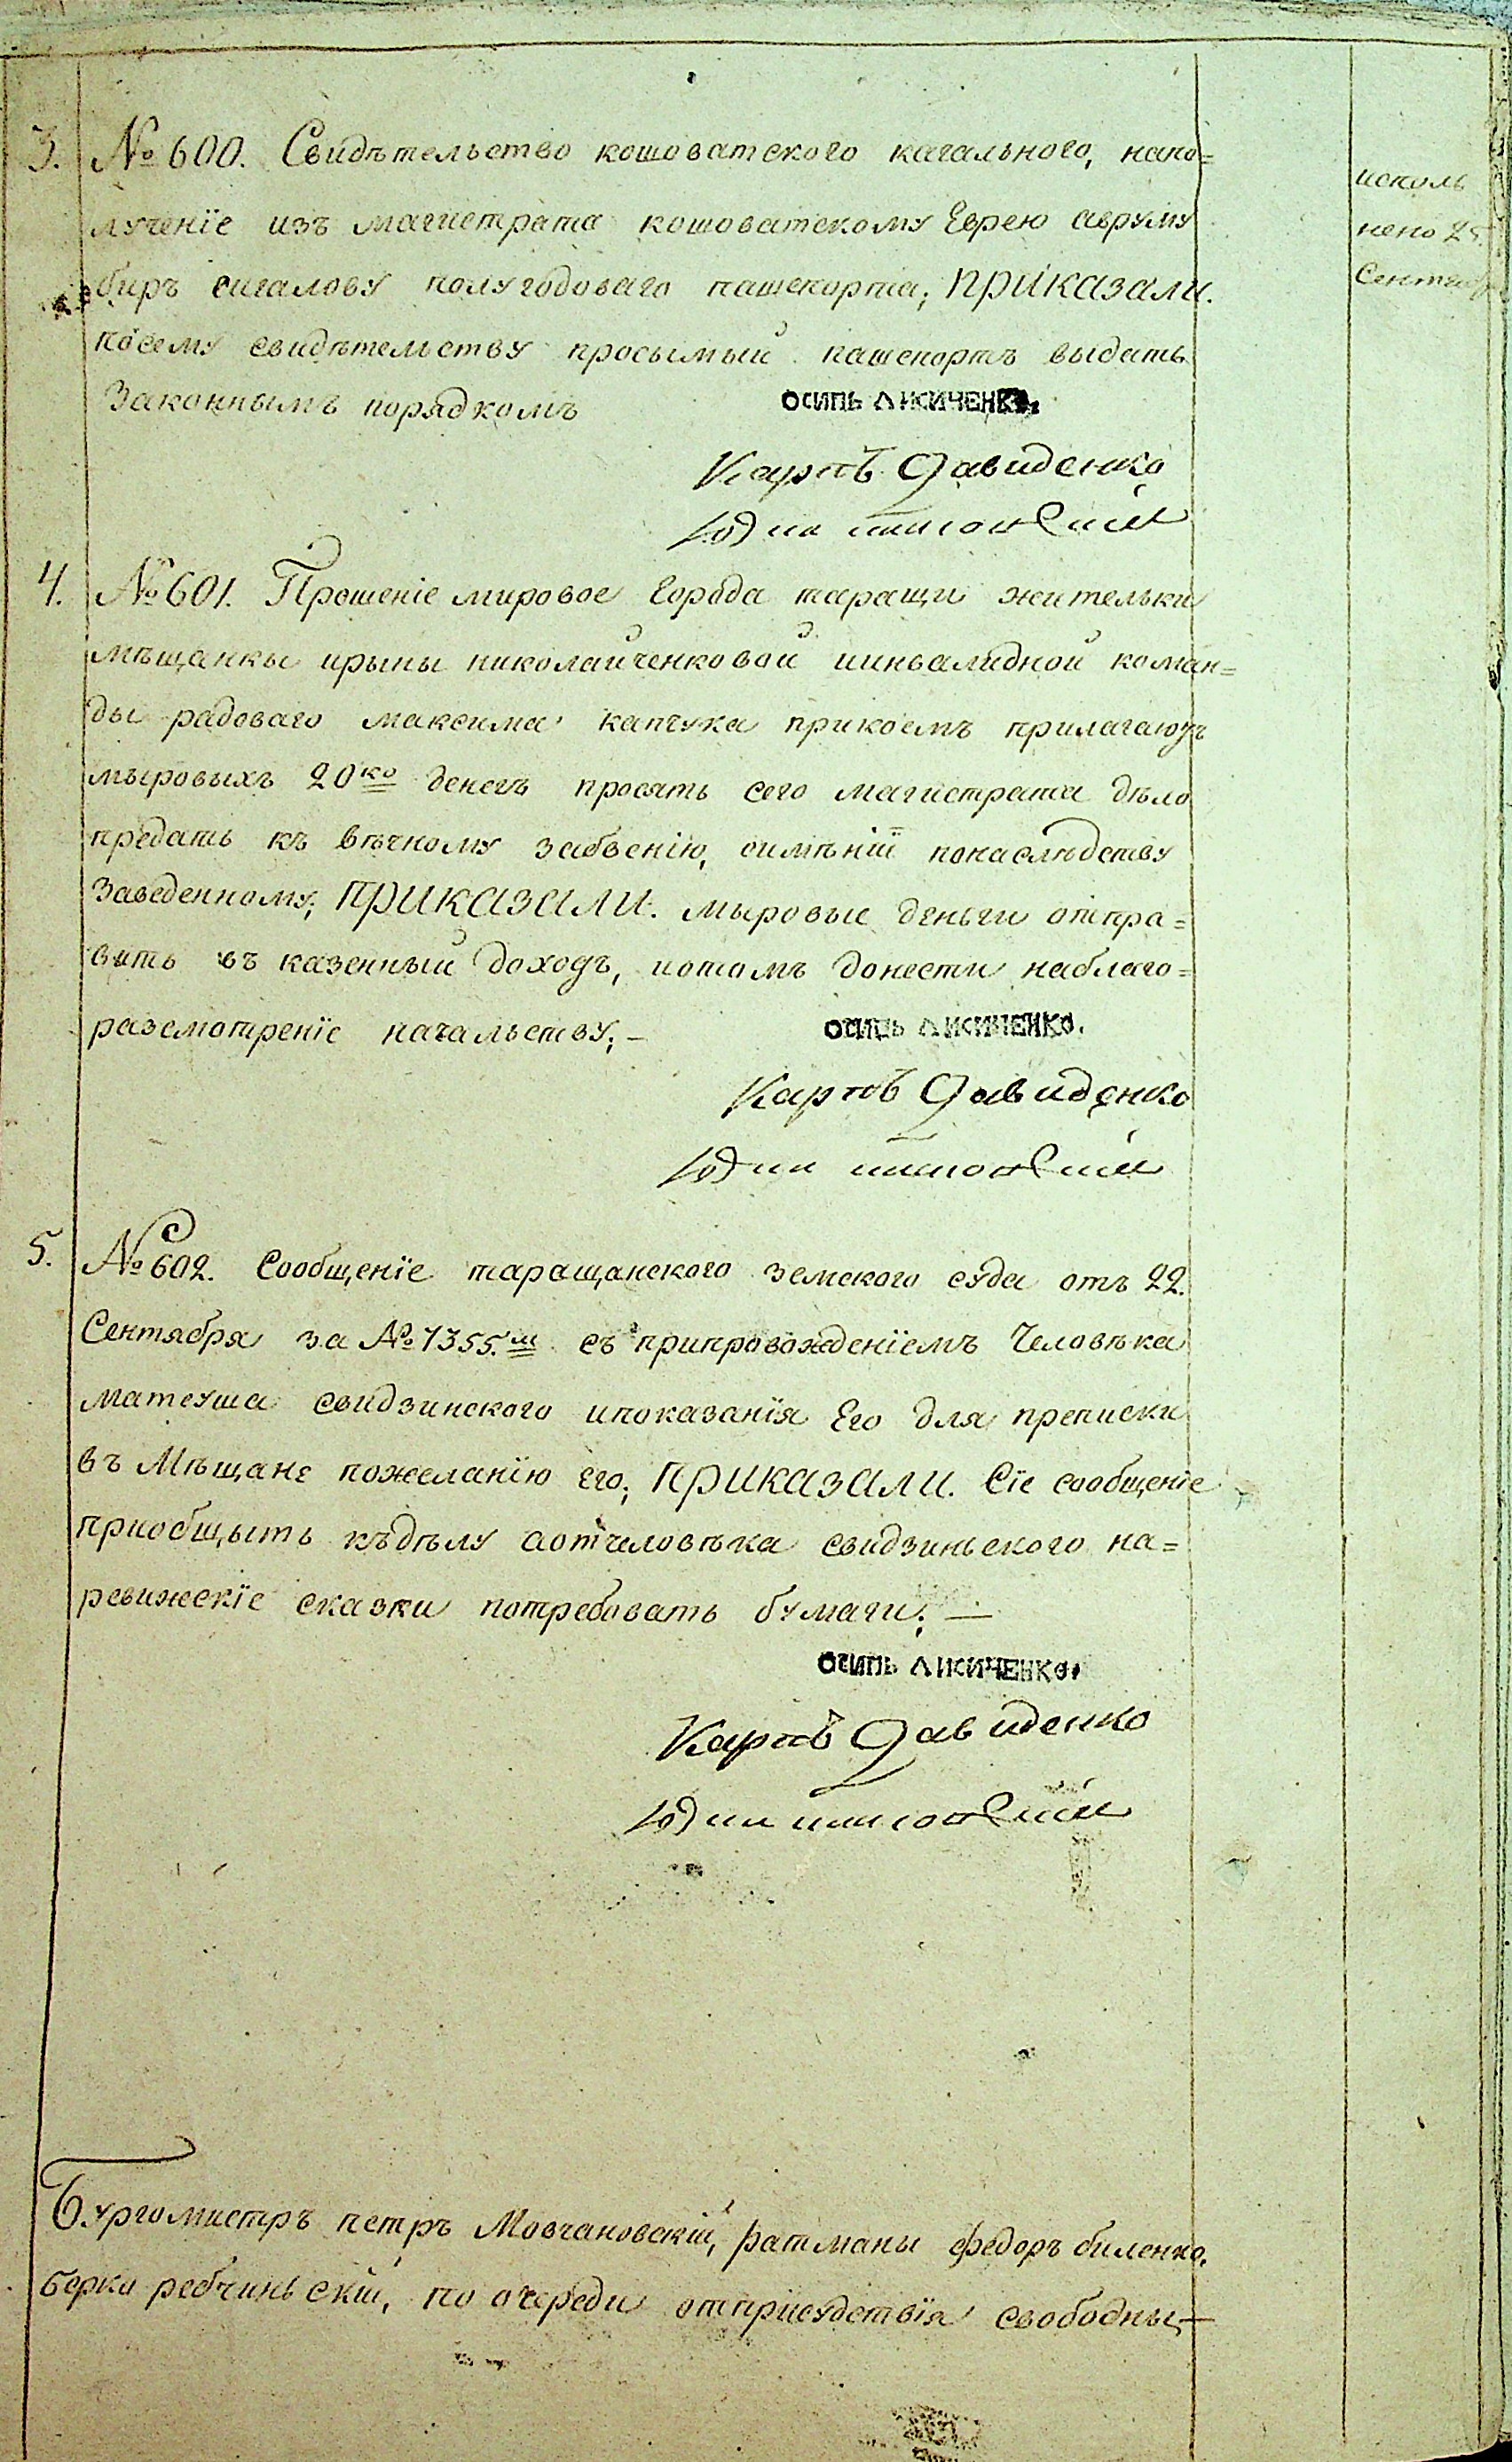 3. № 600. Свидѣтельство кошоватского кагального, напо=
лученїе изъ магистрата кошоватскому Еврею авруму
биръ сигалову полугодоваго пашепорта; приказали.
посему свидѣтельству просымый пашепортъ выдать
Законнымъ порядкомъ
исполь
нено 25.
Сентября
осипь лисиченко
Карпъ Давиденко
4. № 601. Прошеніе мировое города таращи жительки
мѣщанкы ирыны николайченковой иинвалидной коман=
ды радоваго максима капчука прикоемъ прилагаютъ
мыровыхъ 20ко денегъ просять сего магистрата дѣло
предать къ вѣчному забвенію, оимѣнїй понаслѣдству
Заведенному; приказали. мыровые деньги отпра=
вить въ казенный доходъ, иотомъ донести наблаго=
раземотренїе начальству; —
осипь лисиченко.
Карпъ Давиденко
5. № 602. Сообщенїе таращанского земского суда отъ 22.
Сентября за № 1355.м съ припровожденїемъ Человѣка
матеуша свидзинского ипоказанїя Его для преписки
въ Мѣщане пожеланїю его; приказали. Сїе сообщенїе
приобщыть къдѣлу аотчеловѣка свидзиньского на=
ревижскїе сказки потребовать бумаги; —
осипь лисиченко
Карпъ Давиденко
Бургомистръ петръ Мовчановскій, ратманы федоръ биленко,
берко ребчиньскій, по очереди отприсудствїя свободны, —